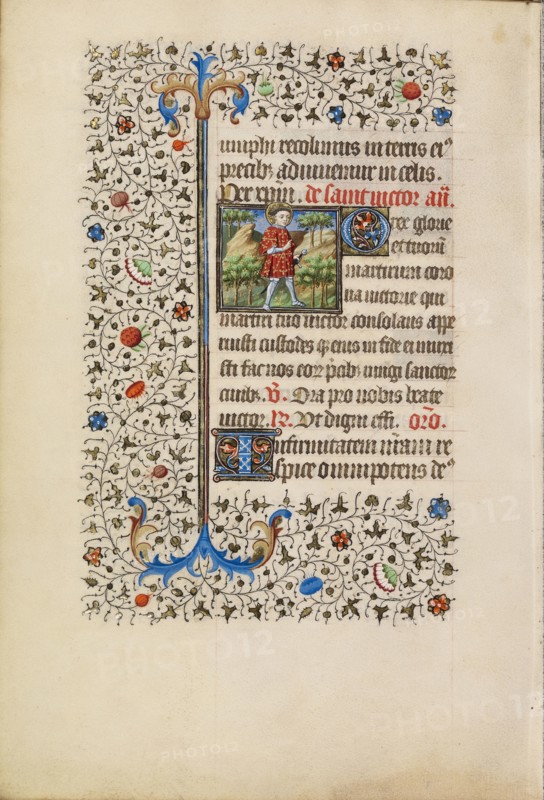 umphi recolimus in terris ei⁹
precibꝫ adiuuemur in celis.
Per xpm̄. de saint victor añ.
O rex glorie
et tuorū
martirum coro
na uictorie qui
martiri tuo victor consolans appa
ruisti custodes qꝫ eius in fide
sti fac nos eoꝝ p̄cibꝫ iungi sanctoꝝ
ciuibꝫ. V̄. Ora pro nobis beate
victor. R̄. Vt digni effi. oro̅.
Infirmitatem nr̄am re
spice omnipotens de⁹
PHOTO12